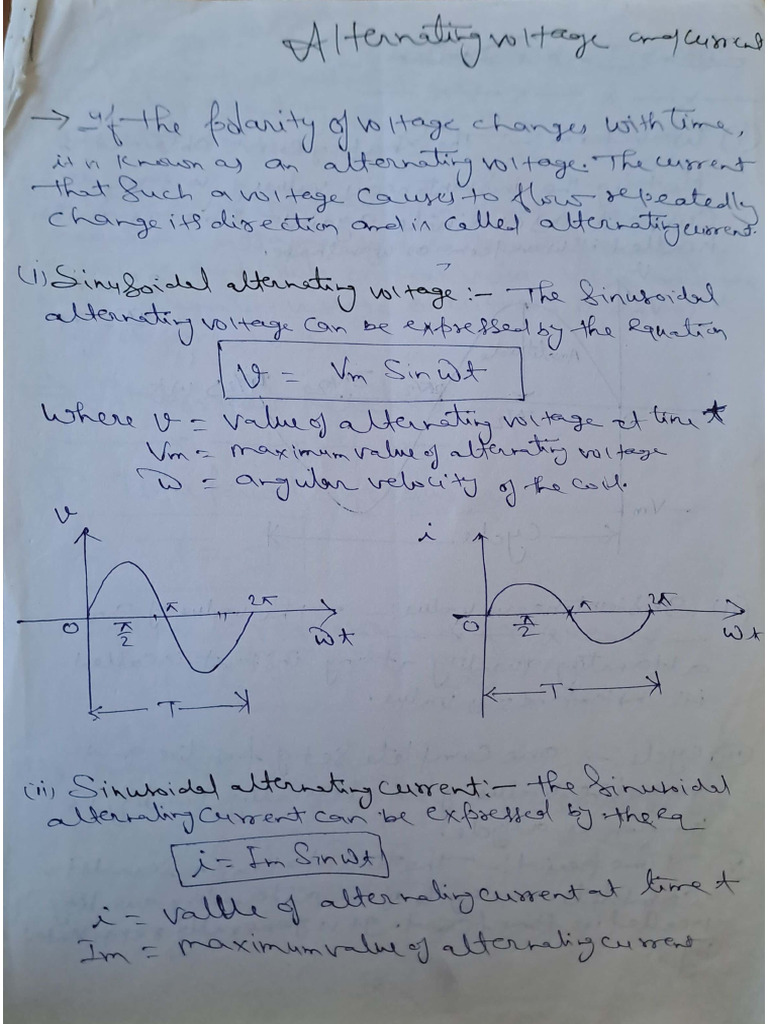 Alternating voltage and current
→ If the polarity of voltage changes with time,
it is known as an alternating voltage. The current
that such a voltage causes to flow repeatedly
change its direction and is called alternating current.
(i) Sinusoidal alternating voltage :- The Sinusoidal
alternating voltage can be expressed by the equation
v = Vm Sin ωt
Where v = value of alternating voltage at time t
Vm = maximum value of alternating voltage
ω = angular velocity of the coil.
v i
π 2π π 2π
0 π/2 ωt 0 π/2 ωt
T T
(ii) Sinusoidal alternating current :- the Sinusoidal
alternating current can be expressed by the eq.
i = Im Sin ωt
i = value of alternating current at time t
Im = maximum value of alternating current